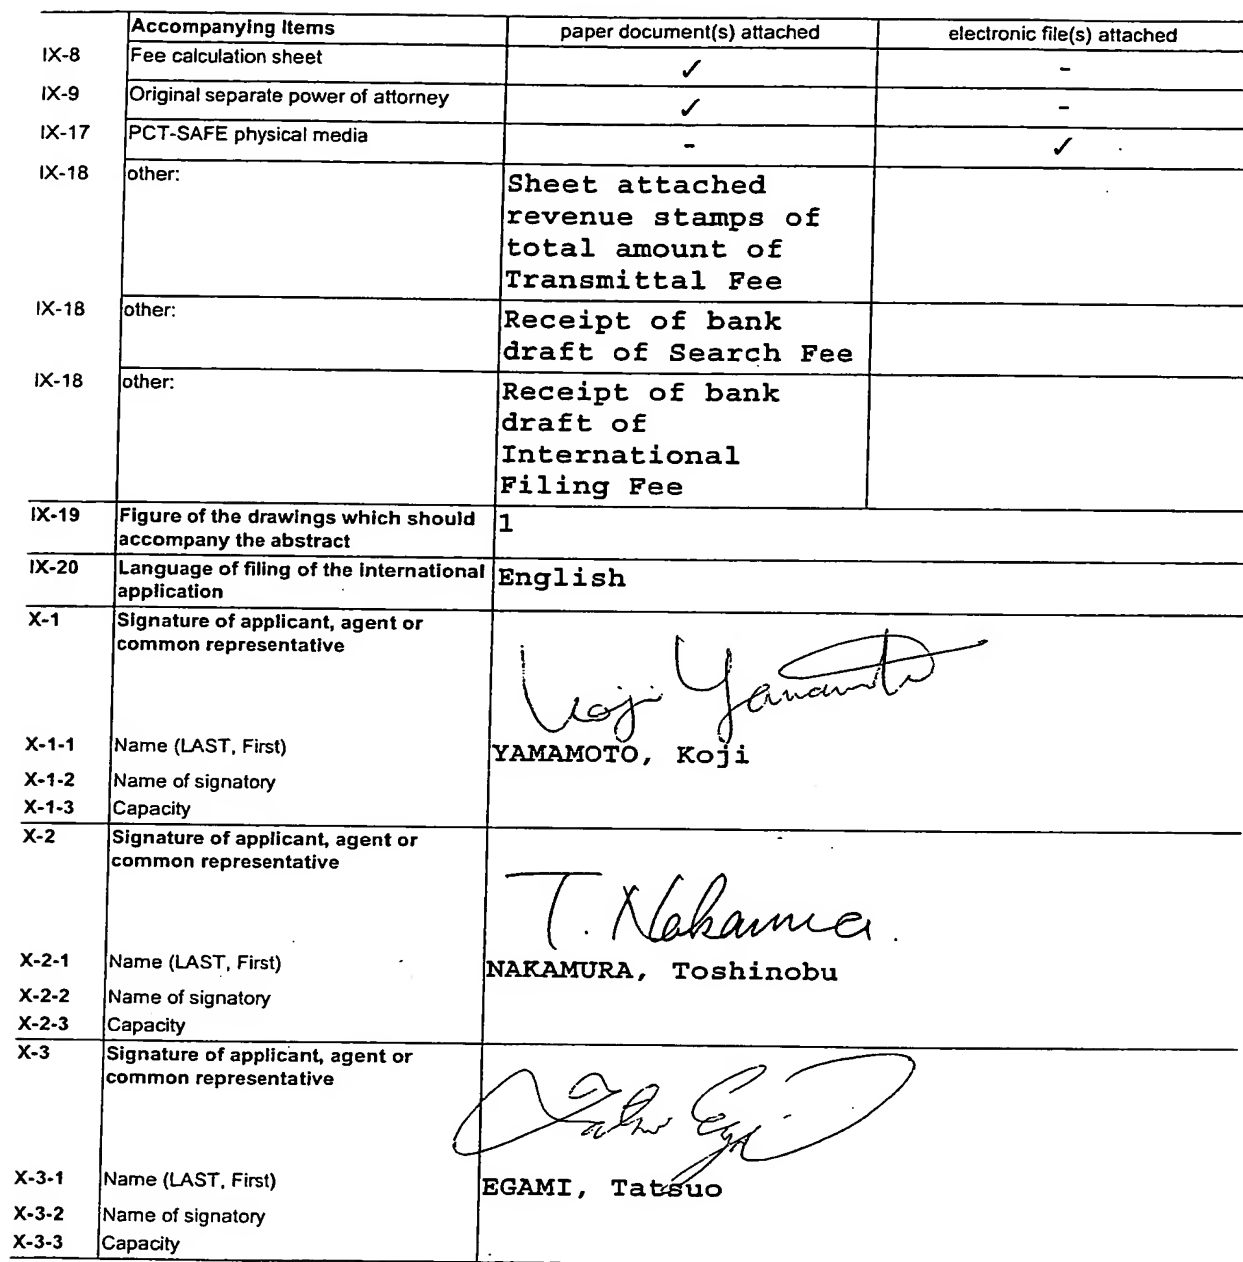 Accompanying Items paper document(s) attached electronic file(s) attached
IX-8 Fee calculation sheet ✓ -
IX-9 Original separate power of attorney ✓ -
IX-17 PCT-SAFE physical media - ✓
IX-18 other: Sheet attached
revenue stamps of
total amount of
Transmittal Fee
IX-18 other: Receipt of bank
draft of Search Fee
IX-18 other: Receipt of bank
draft of
International
Filing Fee
IX-19 Figure of the drawings which should 1
accompany the abstract
IX-20 Language of filing of the international English
application
X-1 Signature of applicant, agent or
common representative
Koji Yamamoto
X-1-1 Name (LAST, First) YAMAMOTO, Koji
X-1-2 Name of signatory
X-1-3 Capacity
X-2 Signature of applicant, agent or
common representative
T. Nakamura
X-2-1 Name (LAST, First) NAKAMURA, Toshinobu
X-2-2 Name of signatory
X-2-3 Capacity
X-3 Signature of applicant, agent or
common representative
Tatsuo Egami
X-3-1 Name (LAST, First) EGAMI, Tatsuo
X-3-2 Name of signatory
X-3-3 Capacity